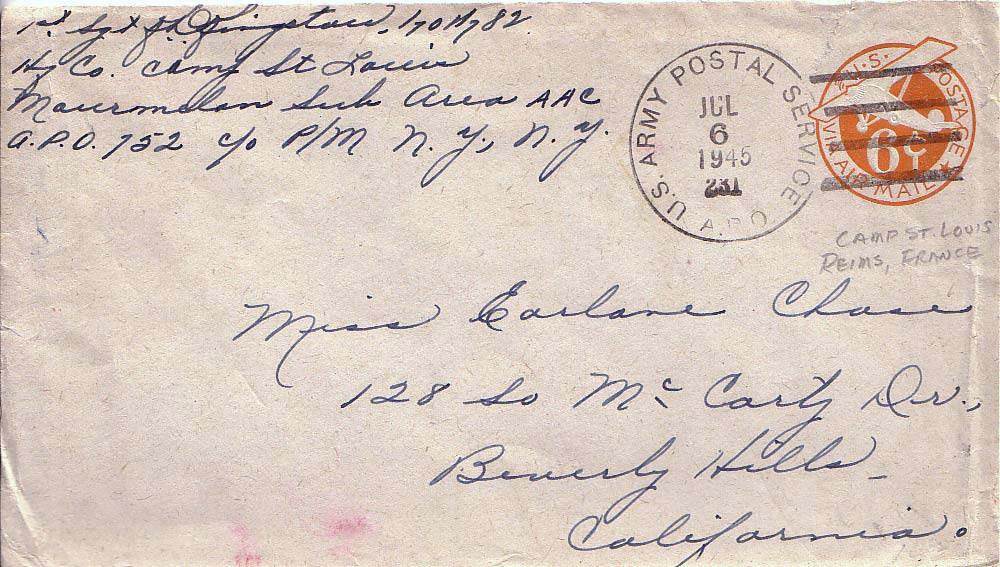 1st Sgt Kingston, 17017782
Hq Co. Camp St Louis
Mourmelon Sub Area AAC
A.P.O. 752 c/o P/M N.Y., N.Y.
U.S. ARMY POSTAL SERVICE
JUL
6
1945
231
A.P.O.
U.S. POSTAGE
6¢
VIA AIR MAIL
CAMP ST. LOUIS
REIMS, FRANCE
Miss Earlane Chase
128 So McCarty Dr.,
Beverly Hills
California.